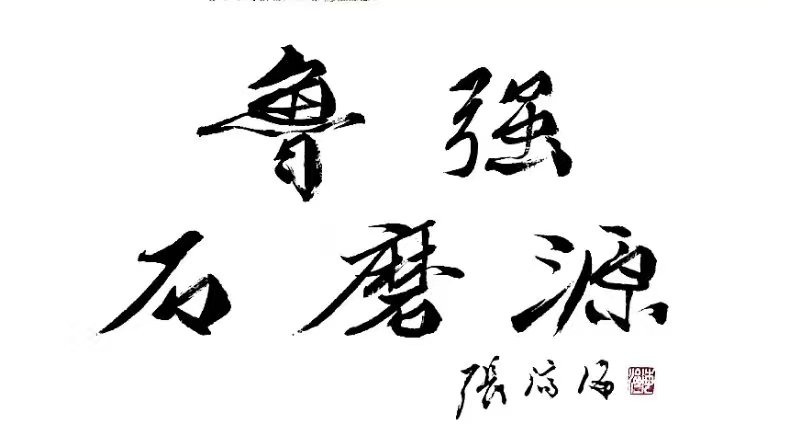 鲁强
石磨源
張